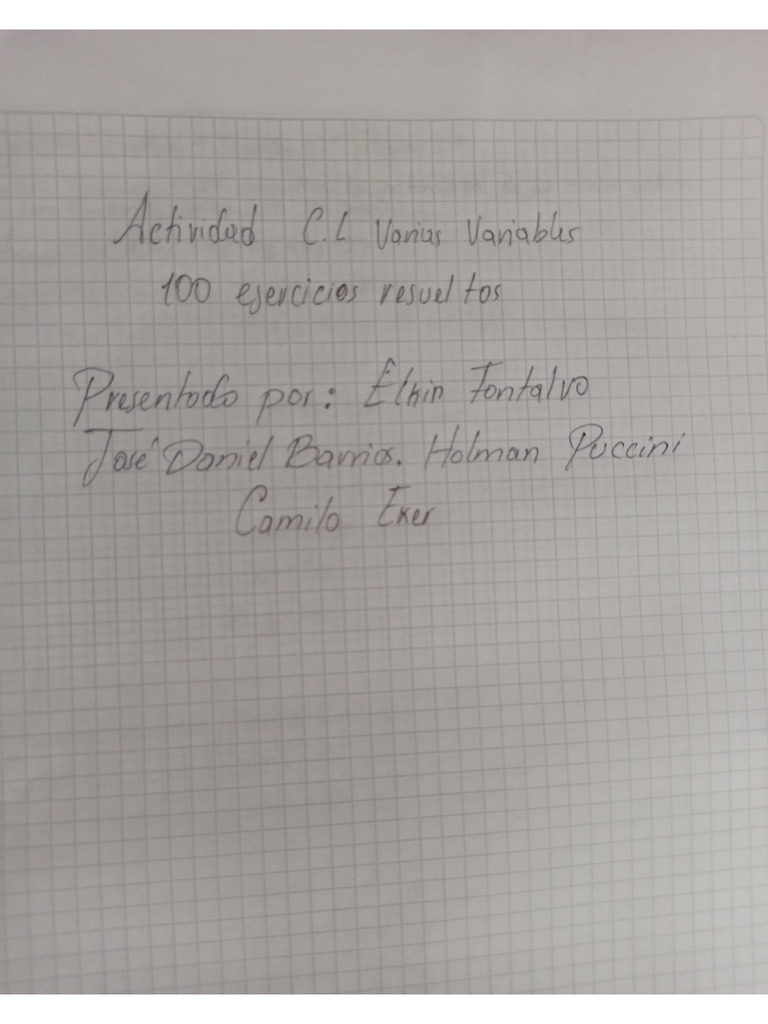 Actividad C.L Varias Variables
100 ejercicios resueltos
Presentado por: Elkin Fontalvo
José Daniel Barrios. Holman Puccini
Camilo Eker